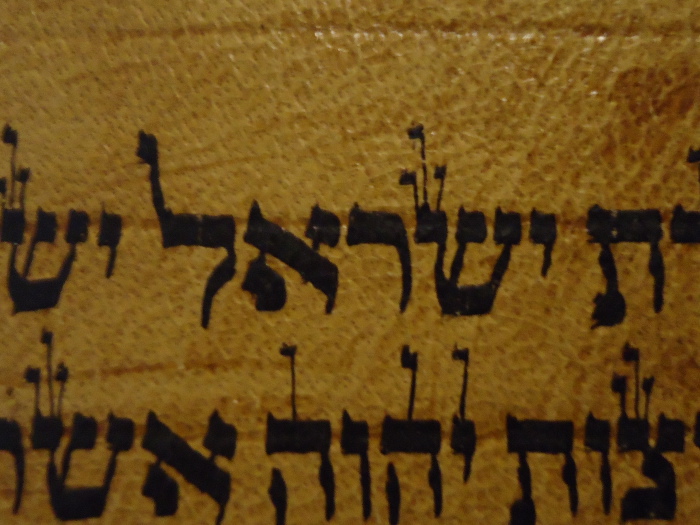 ת ישראל יש
צות יהוה אשר